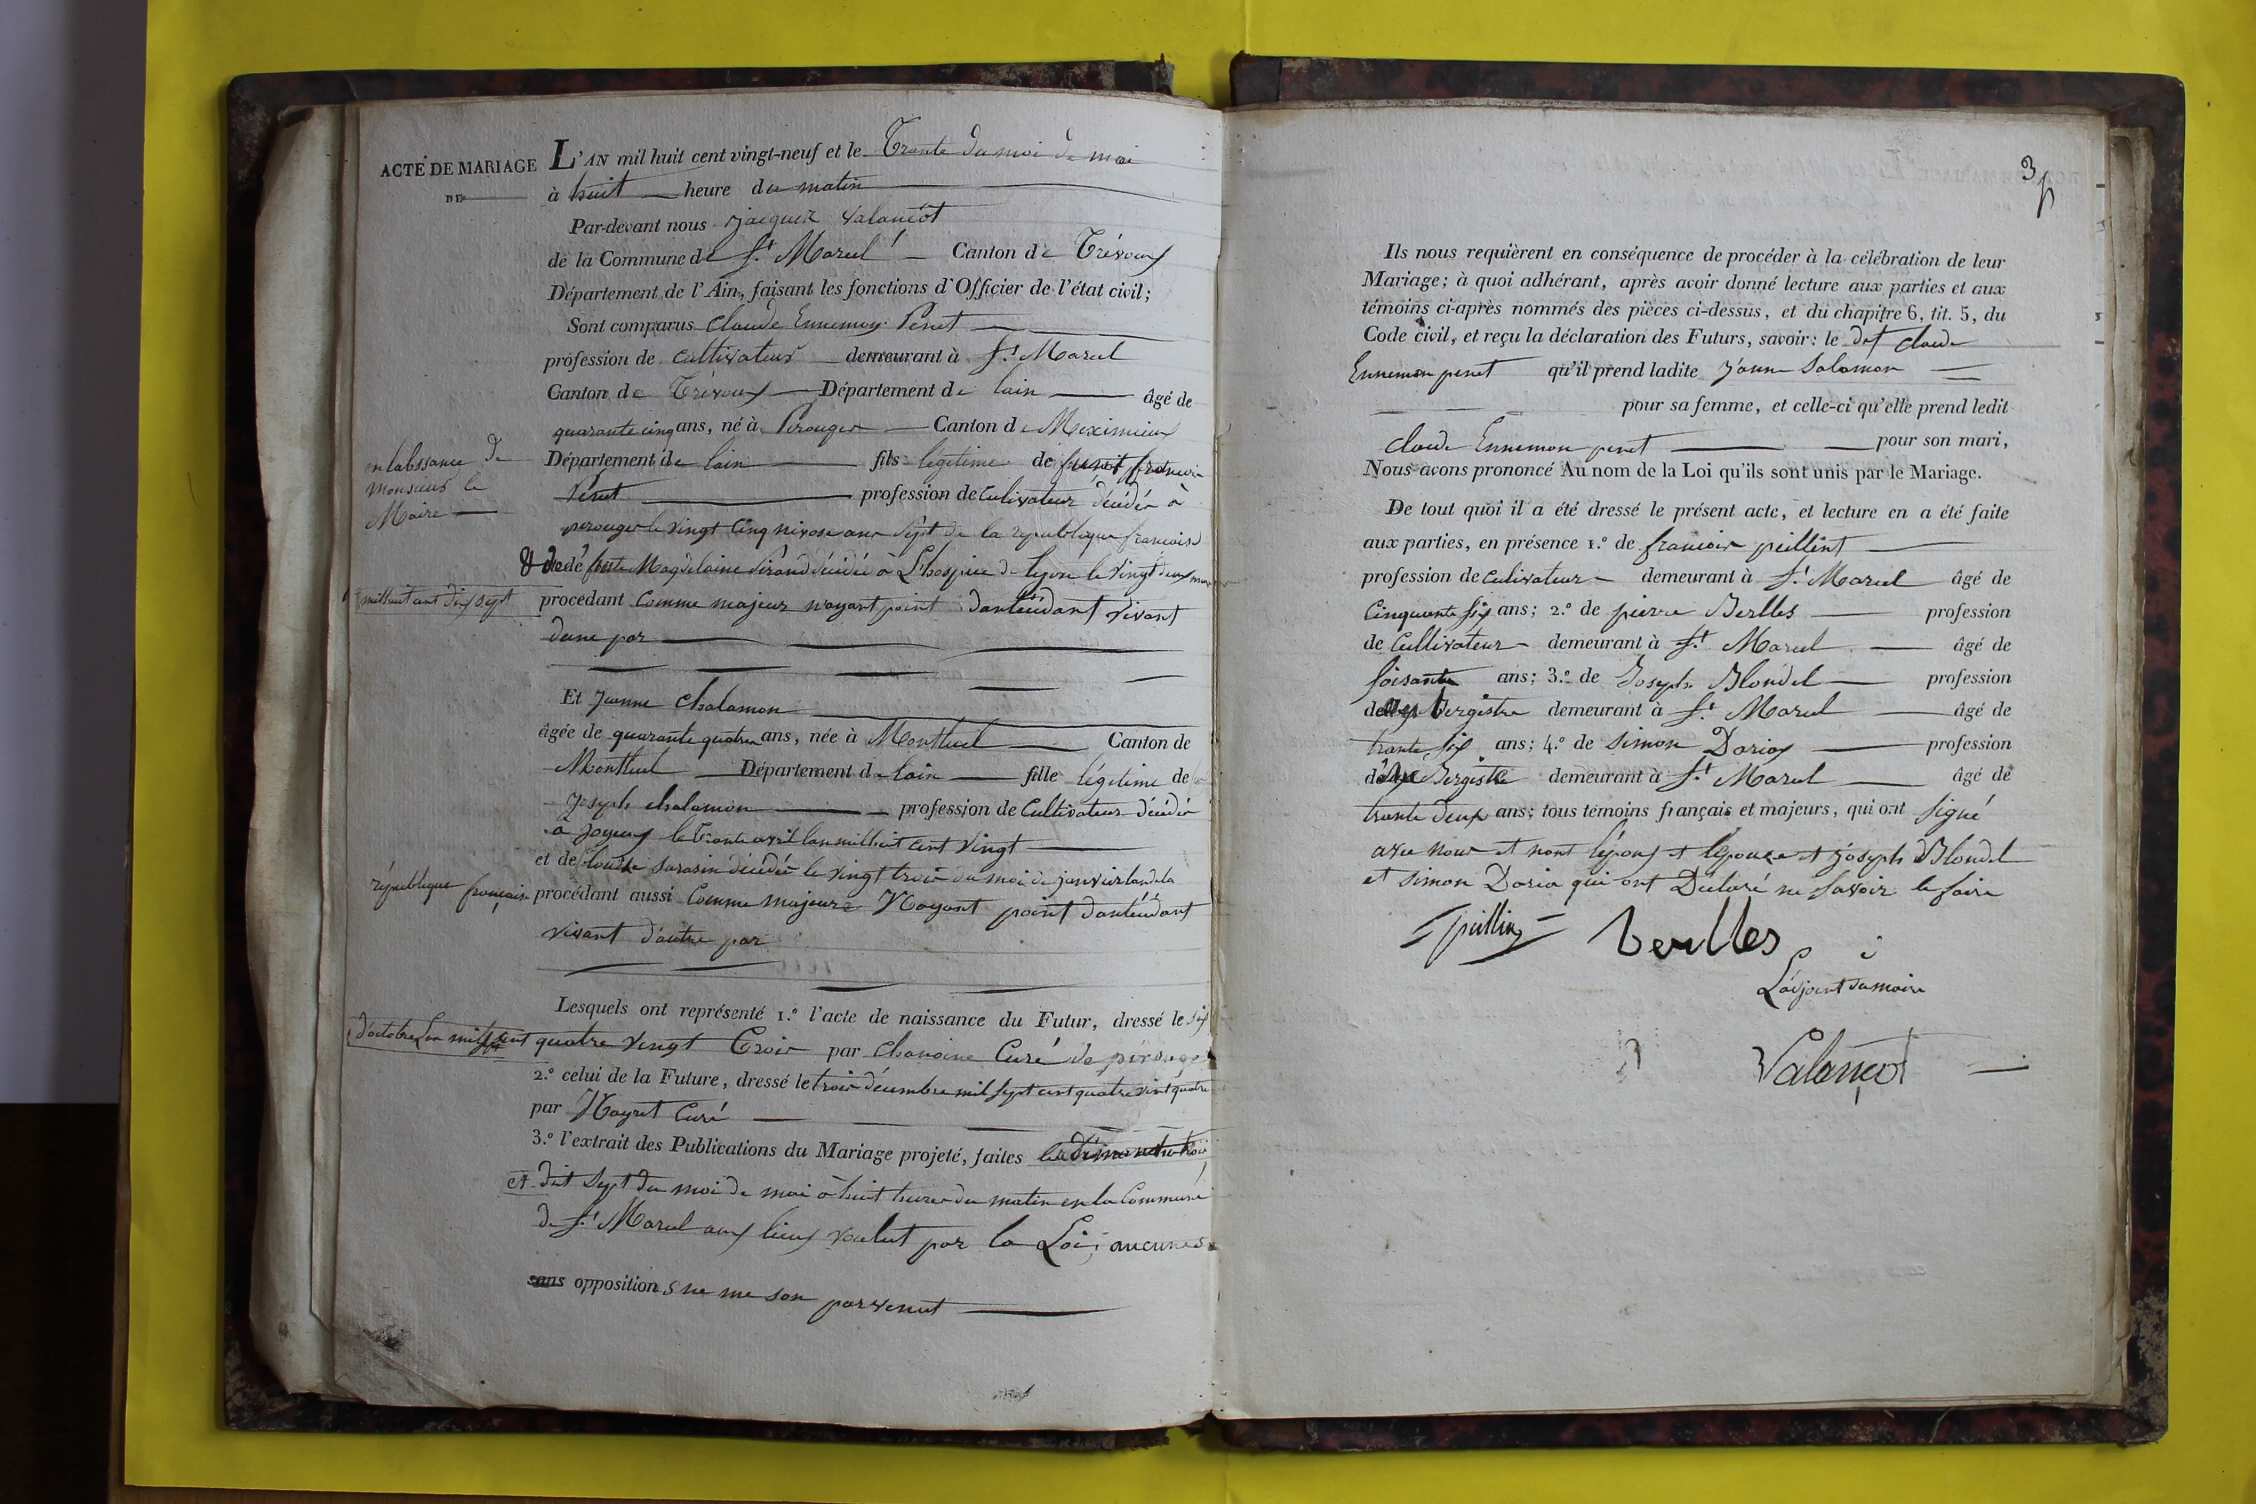 ACTE DE MARIAGE
DE
L'AN mil huit cent vingt-neuf et le Trante du moi de mai
à huit heure du matin
Par-devant nous jacques Valançot
de la Commune de St Marcel Canton de Trévoux
Département de l'Ain, faisant les fonctions d'Officier de l'état civil;
Sont comparus Claude Ennemon Penet
profession de Cultivateur demeurant à St Marcel
Canton de Trévoux Département de lain âgé de
quarante cinq ans, né à Perouges Canton de Meximieux
en labssance de
Monsieur le
Maire
Département de lain fils légitime de francois
Penet profession de Cultivateur décédé à
perouges le vingt cinq nivose ans sept de la republique francoise
& de Magdelaine Pérand décédée à L'hospice de lyon le vingt deux mars
milhuit cent dix sept
procédant Comme majeur n'ayant point dantécédant vivant
dune par
Et Jeanne Chalamon
âgée de quarante quatre ans, née à Montluel Canton de
Montluel Département de lain fille légitime de
Joseph Chalamon profession de Cultivateur décédé
à Joyeux le Trante avril lan milhuit cent vingt
et de sarasin décédée le vingt trois du moi de janvier lan de la
république française
procédant aussi Comme majeure N'ayant point dantécédant
vivant d'autre par
Lesquels ont représenté 1.º l'acte de naissance du Futur, dressé le six
d'octobre Lan mil sept cent quatre vingt Trois par chanoine Curé de pérouges
2.º celui de la Future, dressé le trois décembre mil sept cent quatre vint quatre
par Nayret Curé
3.º l'extrait des Publications du Mariage projeté, faites
et dit sept du moi de mai à huit heures du matin en la Commune
de St Marcel aux lieux voulut par la Loi; aucunes
sans oppositions ne me son parvenut
3
Ils nous requièrent en conséquence de procéder à la célébration de leur
Mariage; à quoi adhérant, après avoir donné lecture aux parties et aux
témoins ci-après nommés des pièces ci-dessus, et du chapitre 6, tit. 5, du
Code civil, et reçu la déclaration des Futurs, savoir: le dit claude
Ennemon penet qu'il prend ladite Janne Salamon
pour sa femme, et celle-ci qu'elle prend ledit
claude Ennemon penet pour son mari,
Nous avons prononcé Au nom de la Loi qu'ils sont unis par le Mariage.
De tout quoi il a été dressé le présent acte, et lecture en a été faite
aux parties, en présence 1.º de francois peillint
profession de Cultivateur demeurant à St Marcel âgé de
Cinquante six ans; 2.º de pierre Berlles profession
de Cultivateur demeurant à St Marcel âgé de
soisante ans; 3.º de Joseph Blondel profession
de demeurant à St Marcel âgé de
trante six ans; 4.º de simon Doriaz profession
de demeurant à St Marcel âgé de
trante deux ans; tous témoins français et majeurs, qui ont signé
avec nous et nont lépoux et lépouze et joseph Blondel
et simon Doria qui ont Déclaré ne savoir le faire
peillin Verlles
L'adjoint du maire
Valançot